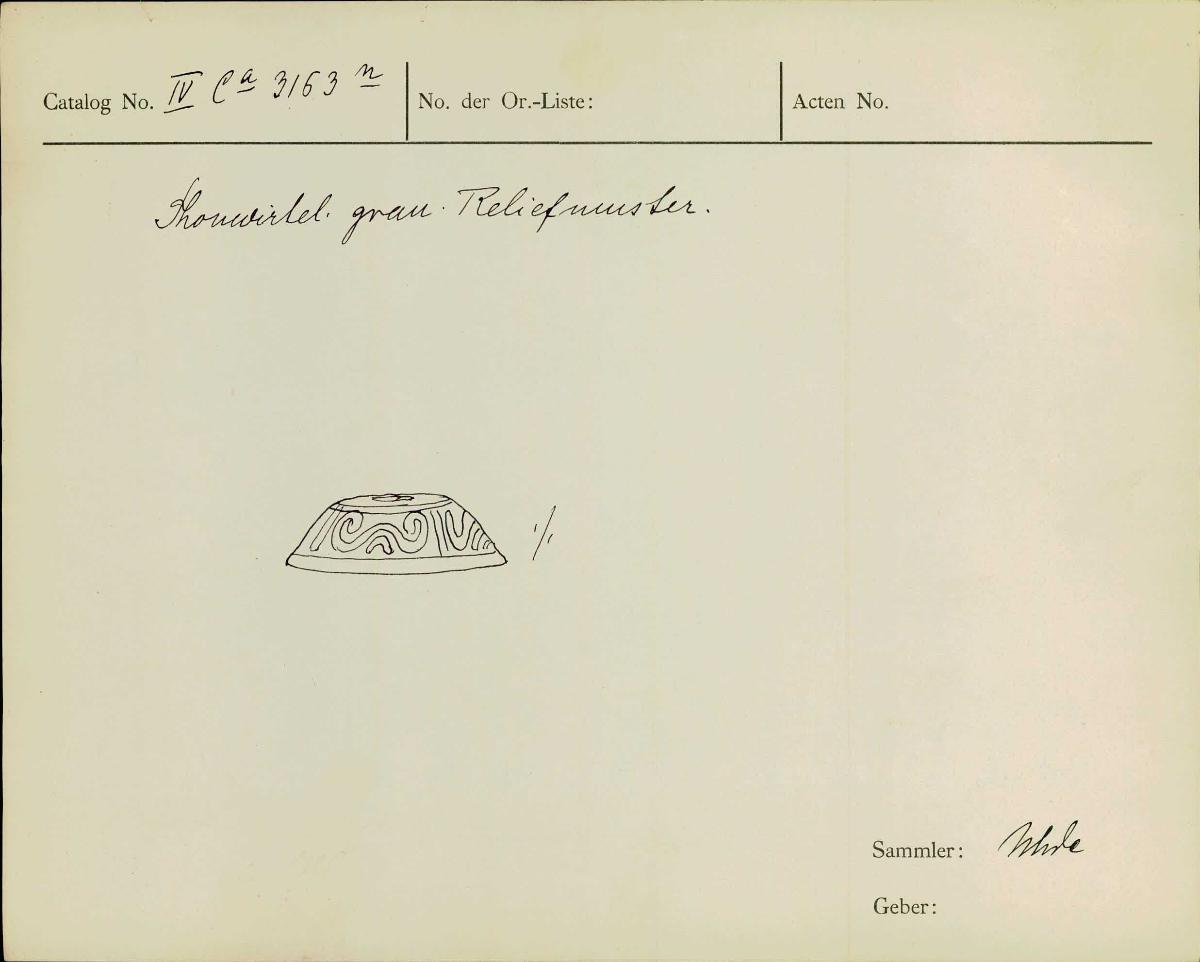 Catalog No. IV Ca 3163 n No. der Or.-Liste: Acten No.
Thonwirtel. grau. Reliefmuster.
1/1
Sammler: Uhde
Geber: